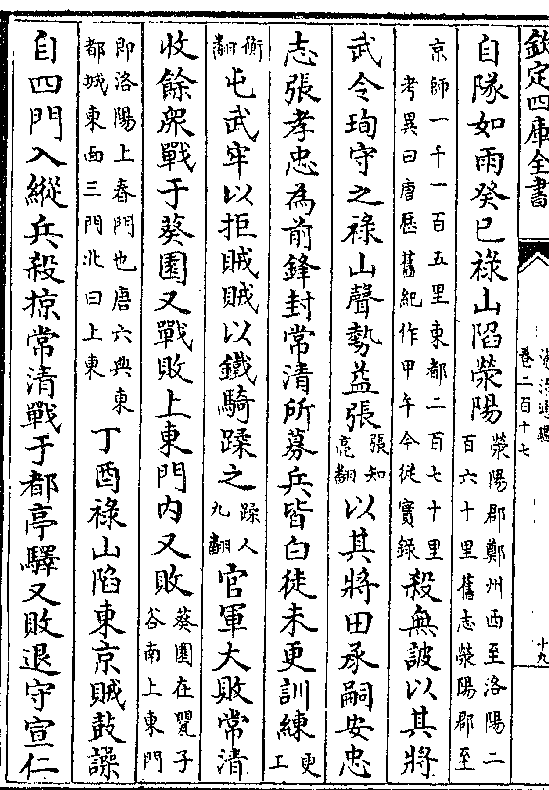 欽定四庫全書
卷二百十七
十九
自隊如雨癸巳祿山陷滎陽
滎陽郡鄭州西至洛陽二
百六十里舊志滎陽郡至
京師一千一百五里東都二百七十里
考異曰唐歷舊紀作甲午今從實錄
殺無詖以其將
武令珣守之祿山聲勢益張
張知
亮翻
以其將田承嗣安忠
志張孝忠為前鋒封常清所募兵皆白徒未更訓練
更
工
衡
翻
屯武牢以拒賊賊以鐵騎蹂之
蹂人
九翻
官軍大敗常清
收餘衆戰于葵園又戰敗上東門内又敗
葵園在甖子
谷南上東門
即洛陽上春門也唐六典東
都城東面三門北曰上東
丁酉祿山陷東京賊鼓譟
自四門入縱兵殺掠常清戰于都亭驛又敗退守宣仁